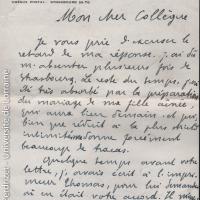 CHÈQUE POSTAL : STRASBOURG
Mon cher Collègue
Je vous prie d'excuser le
retard de ma réponse. j'ai dû
m'absenter plusieurs fois de
Strasbourg. Le reste du temps, j'ai
été très absorbé par la préparation
du mariage de ma fille aînée,
qui aura lieu demain et qui,
bien que réduit à la plus stricte
intimité, donne forcément
beaucoup de tracas.
Quelque temps avant votre
lettre, j'avais écrit à l'impri-
meur Thomas, pour lui demander
où en était votre
Université de Lorraine